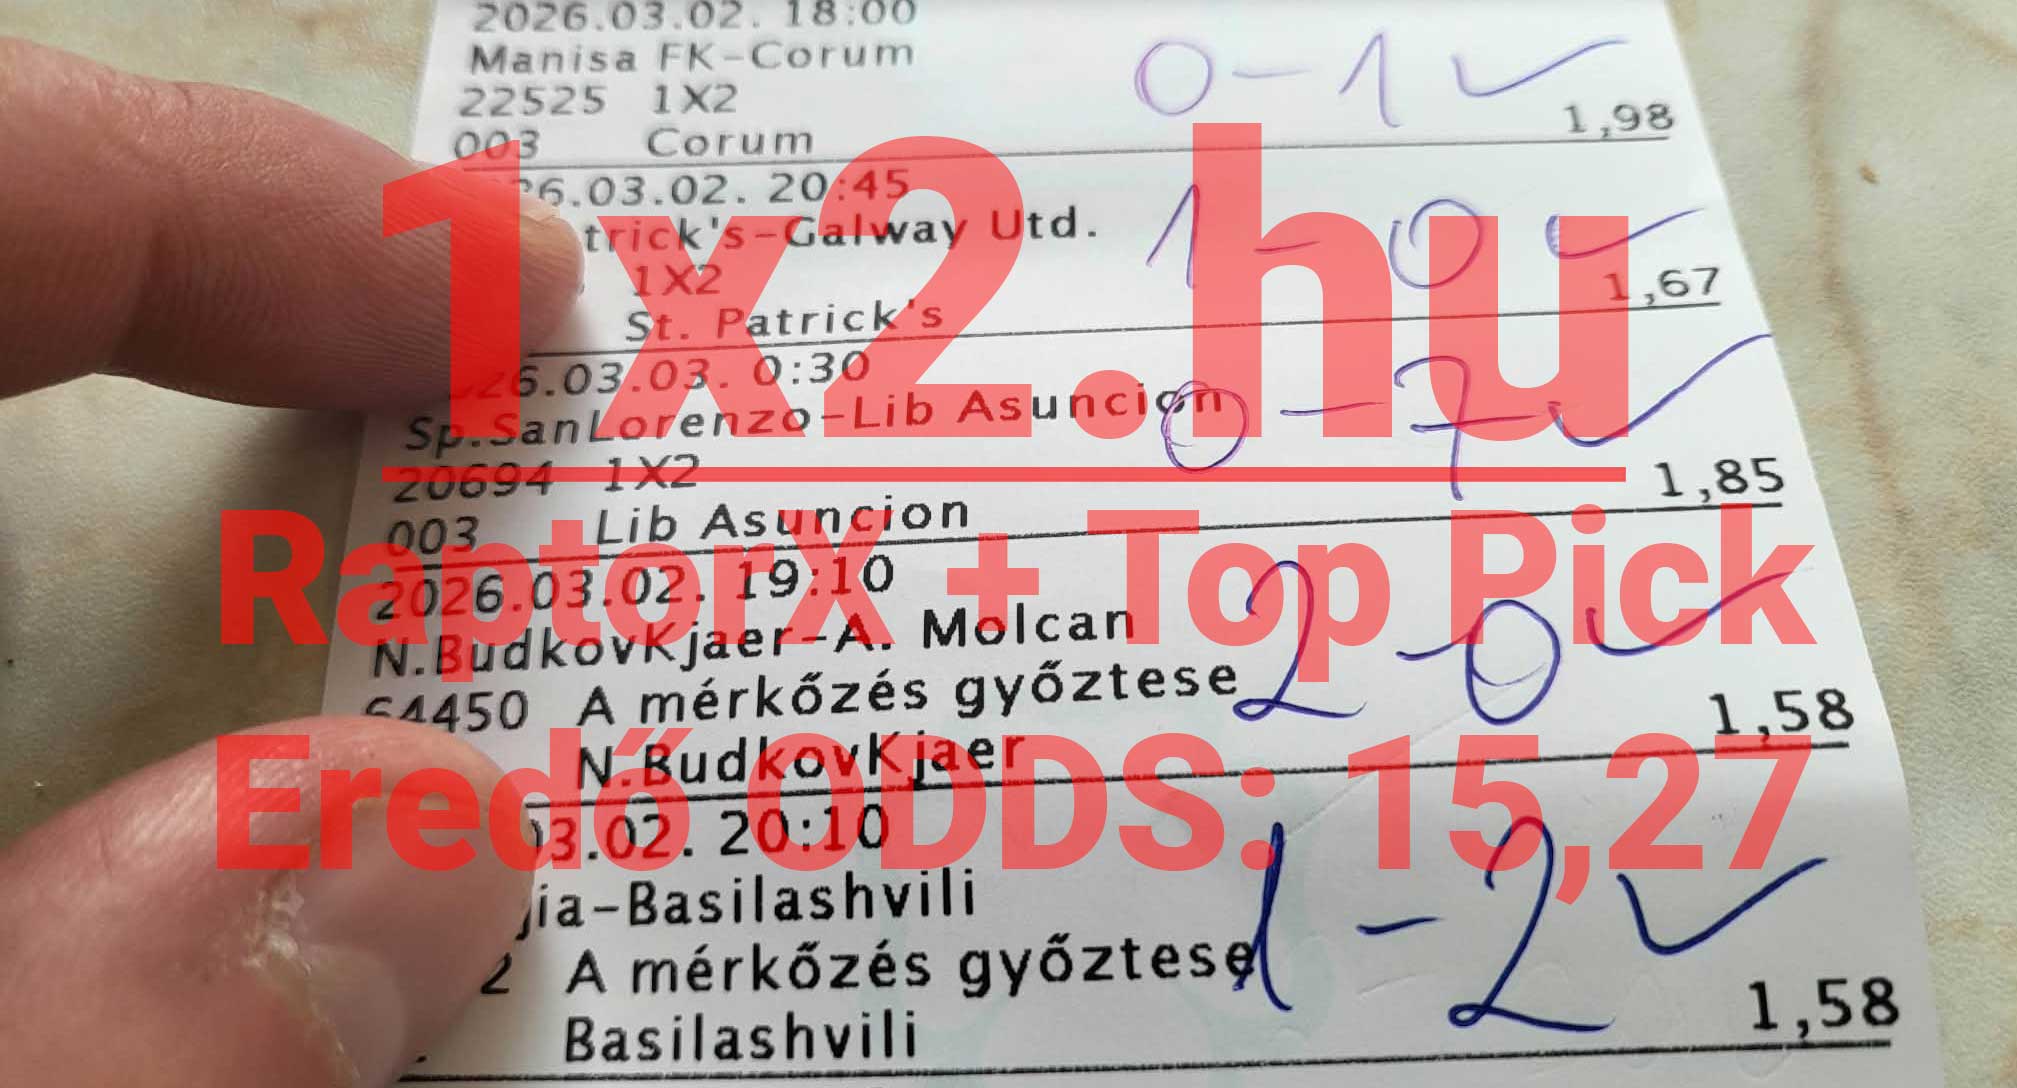 2026.03.02. 18:00
Manisa FK-Corum
0-1 ✓
22525 1X2
1,98
003 Corum
26.03.02. 20:45
trick's-Galway Utd.
1-0 ✓
1X2
1,67
St. Patrick's
26.03.03. 0:30
Sp.SanLorenzo-Lib Asuncion
0-7 ✓
20694 1X2
1,85
003 Lib Asuncion
2026.03.02. 19:10
N.BudkovKjaer-A. Molcan
2-0 ✓
64450 A mérkőzés győztese
1,58
N.BudkovKjaer
03.02. 20:10
jia-Basilashvili
1-2 ✓
2 A mérkőzés győztese
1,58
Basilashvili
1x2.hu
RaptorX + Top Pick
Eredő ODDS: 15,27